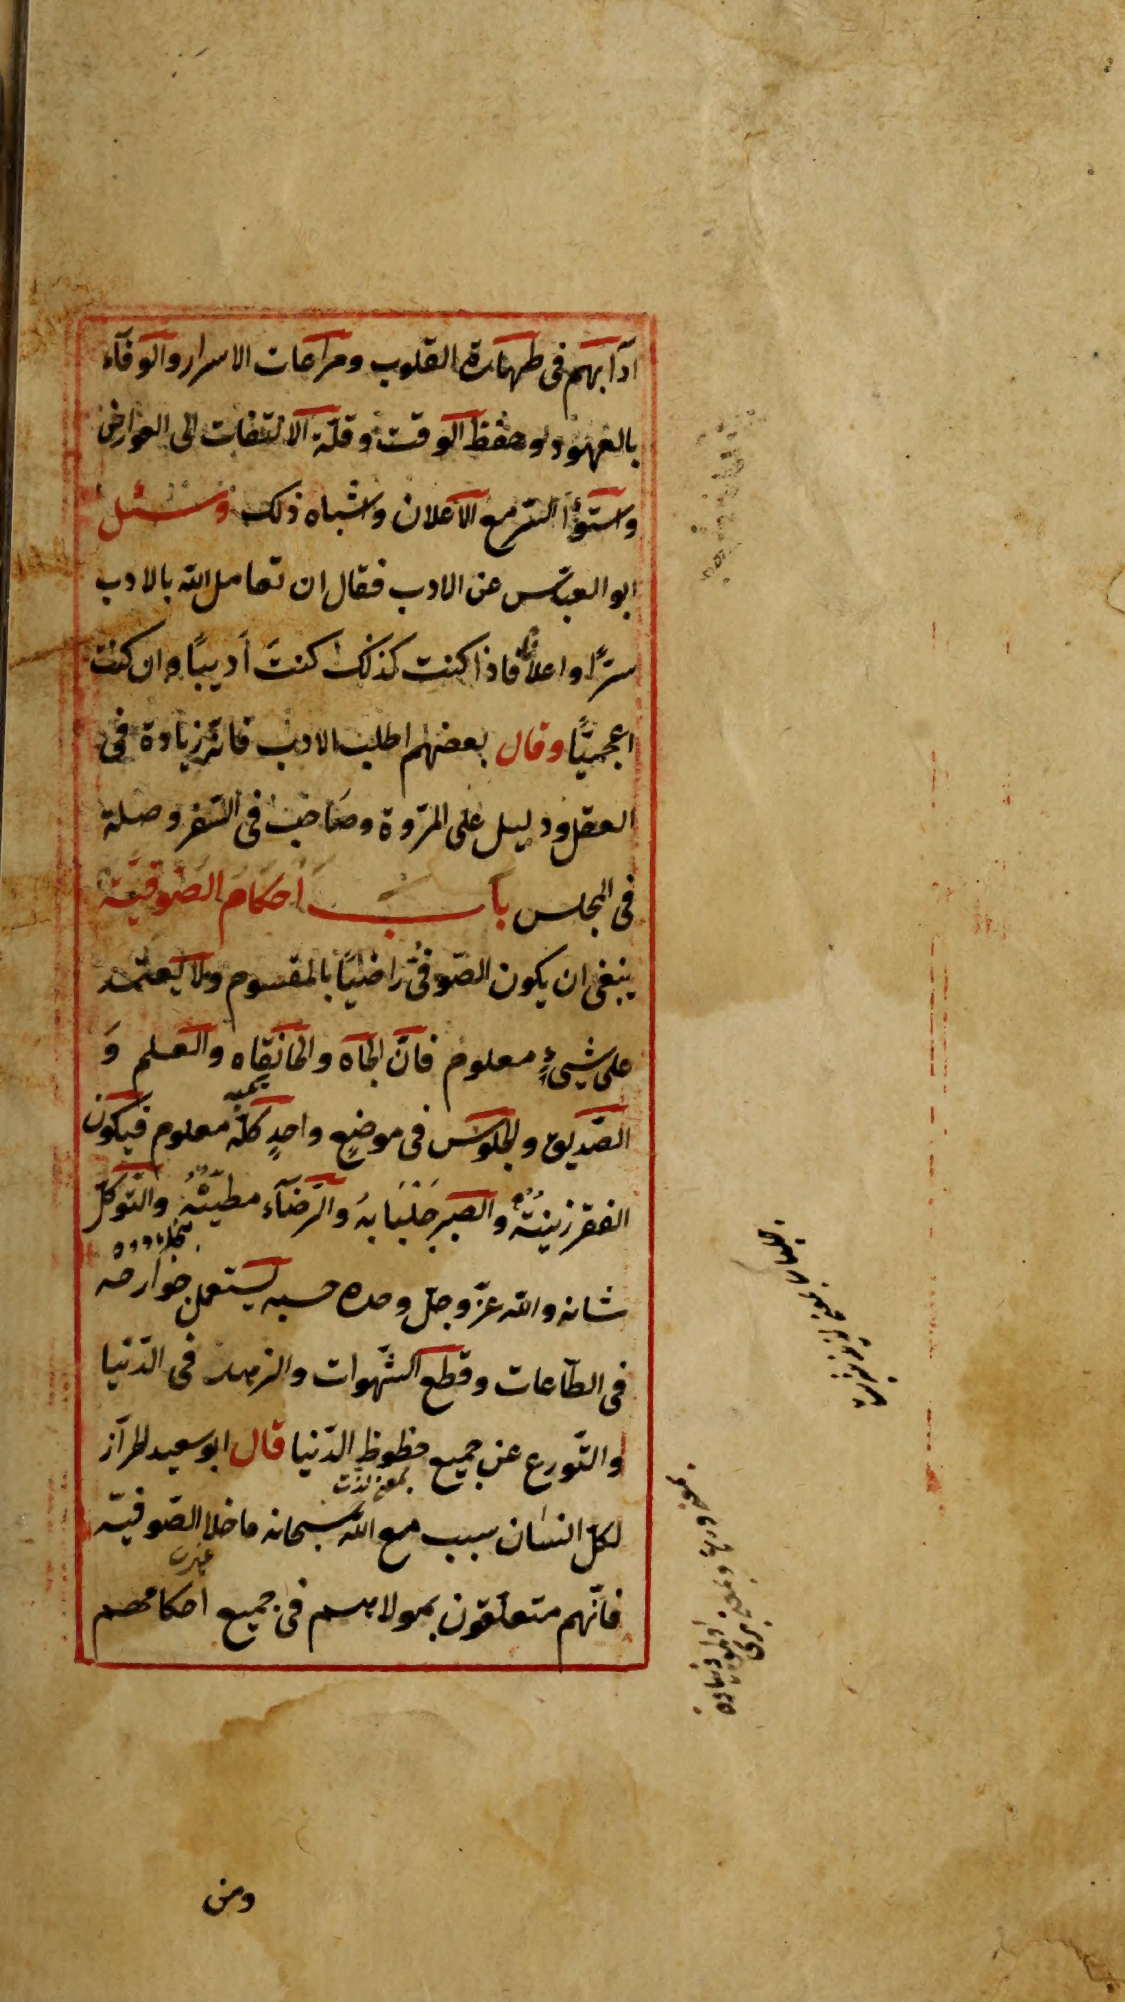 ادآبهم فى طهارة القلوب ومراعات الاسرار والوفآء
بالعهود وحفظ الوقت وقلّة الالتفات الى العوارض
واستوآء السّر مع الاعلان واشباه ذلك وسئل
ابو العبّاس عن الادب فقال ان تعامل الله بالادب
سرًّا واعلانًا فاذا كنت كذلك كنتَ اَديبًا وان كنت
اعجميًّا وقال بعضهم اطلب الادب فانّه زيادة فى
العقل ودليل على المرّوة وصاحب فى السّفر وصلة
فى المجلس بابــ احكام الصّوفيّة
ينبغى ان يكون الصّوفىّ راضيًا بالمقسوم ولا يعتمد
على شيىءٍ معلوم فانّ الجاه والخانقاه والعلم وَ
الصّديق والجلوس فى موضعٍ واحدٍ كلّه معلوم فيكون
الفقر زينتهُ والصبر جَلْبَابهُ والرّضآء مطيّتهُ والتّوكل
شانه والله عزّ وجلّ وحده حسبه يستعمل جوارحه
فى الطّاعات وقطع الشّهوات والزهد فى الدّنيا
والتّورع عن جميع حظوظ الدّنيا قال ابو سعيد الخرآز
بمعنى لذّت
لكلّ انسان سبب مع الله سبحانه ما خلا الصّوفيّة
فانّهم متعلّقون بمولاهم فى جميع احكامهم
ومن